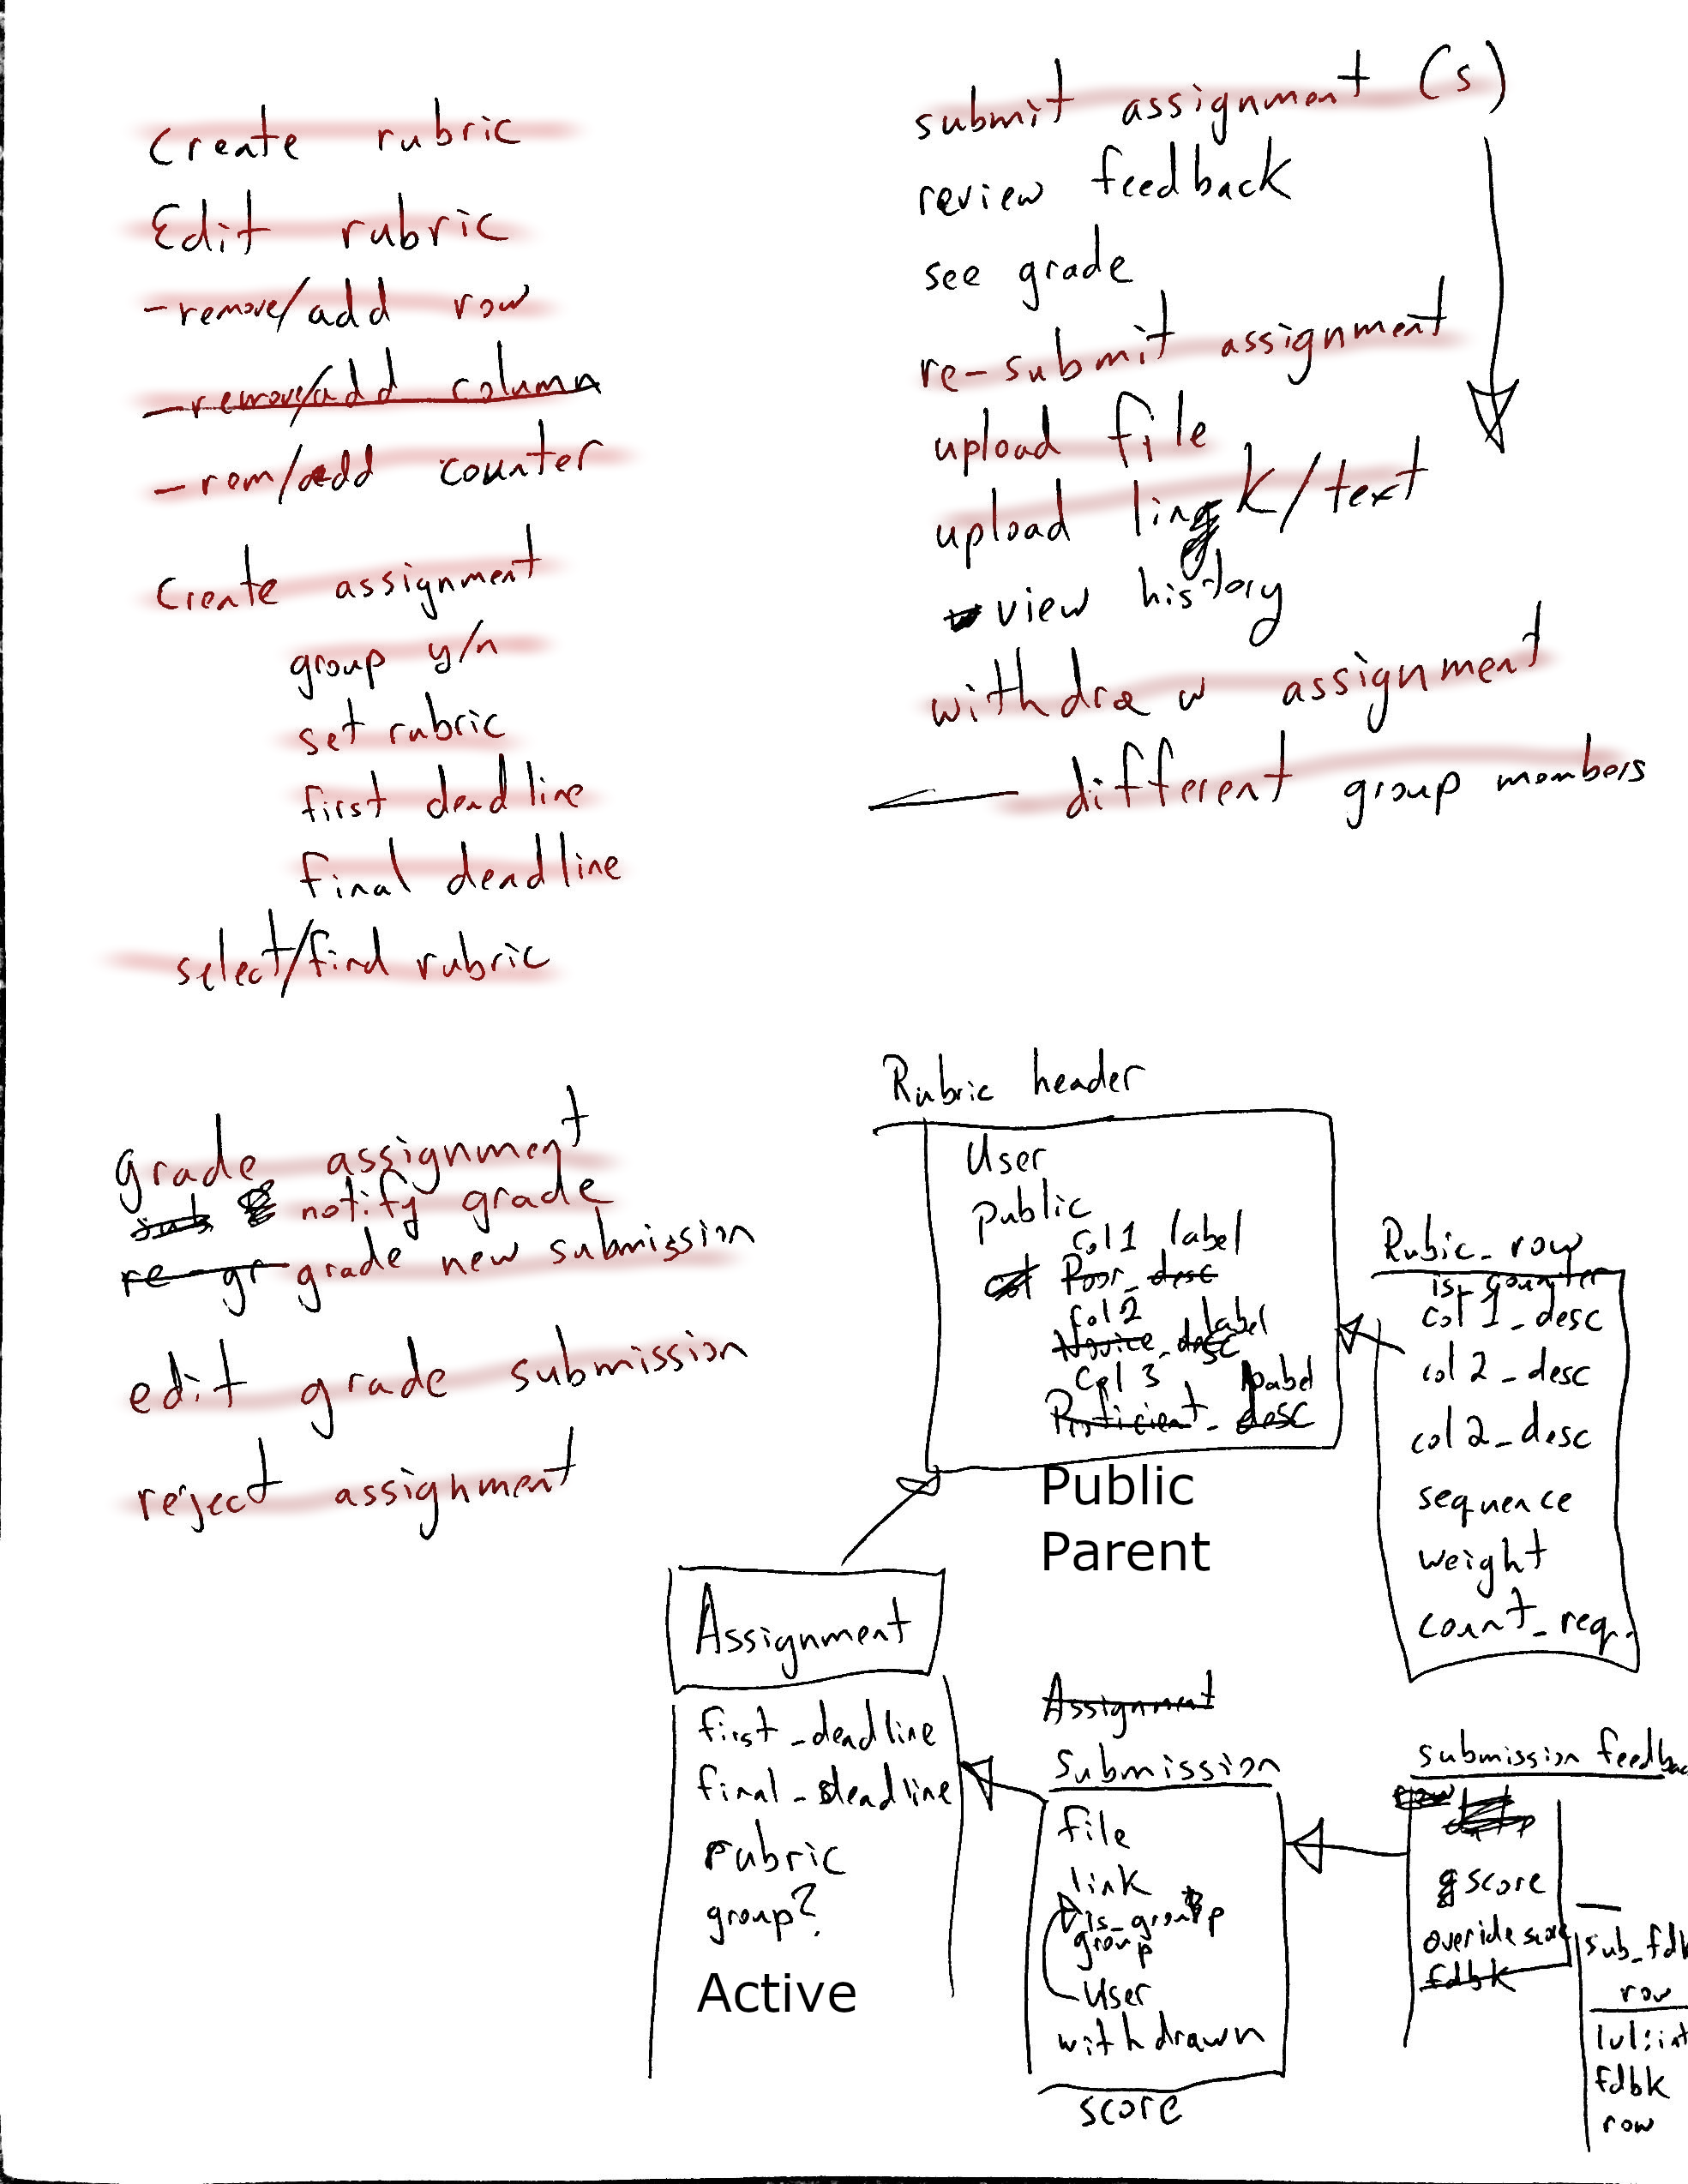 Create rubric
Edit rubric
-remove/add row
-remove/add column
-rem/add counter
Create assignment
group y/n
set rubric
first deadline
final deadline
select/find rubric
submit assignment (s)
review feedback
see grade
re-submit assignment
upload file
upload link/text
view history
withdraw assignment
different group members
grade assignment
sub notify grade
re-gr grade new submission
edit grade submission
reject assignment
Rubric header
User
Public
col1 label
col Poor_desc
col2 label
Novice_desc
Col 3 label
Proficient_desc
Public
Parent
Rubic_row
is_counter
col 1_desc
col 2_desc
col 2_desc
sequence
weight
count_req.
Assignment
first_deadline
final_deadline
rubric
group?
Active
Assignment
Submission
file
link
is_group
group
User
withdrawn
score
submission feedbac
score
override score
fdbk
sub_fdb
row
lvl:int
fdbk
row